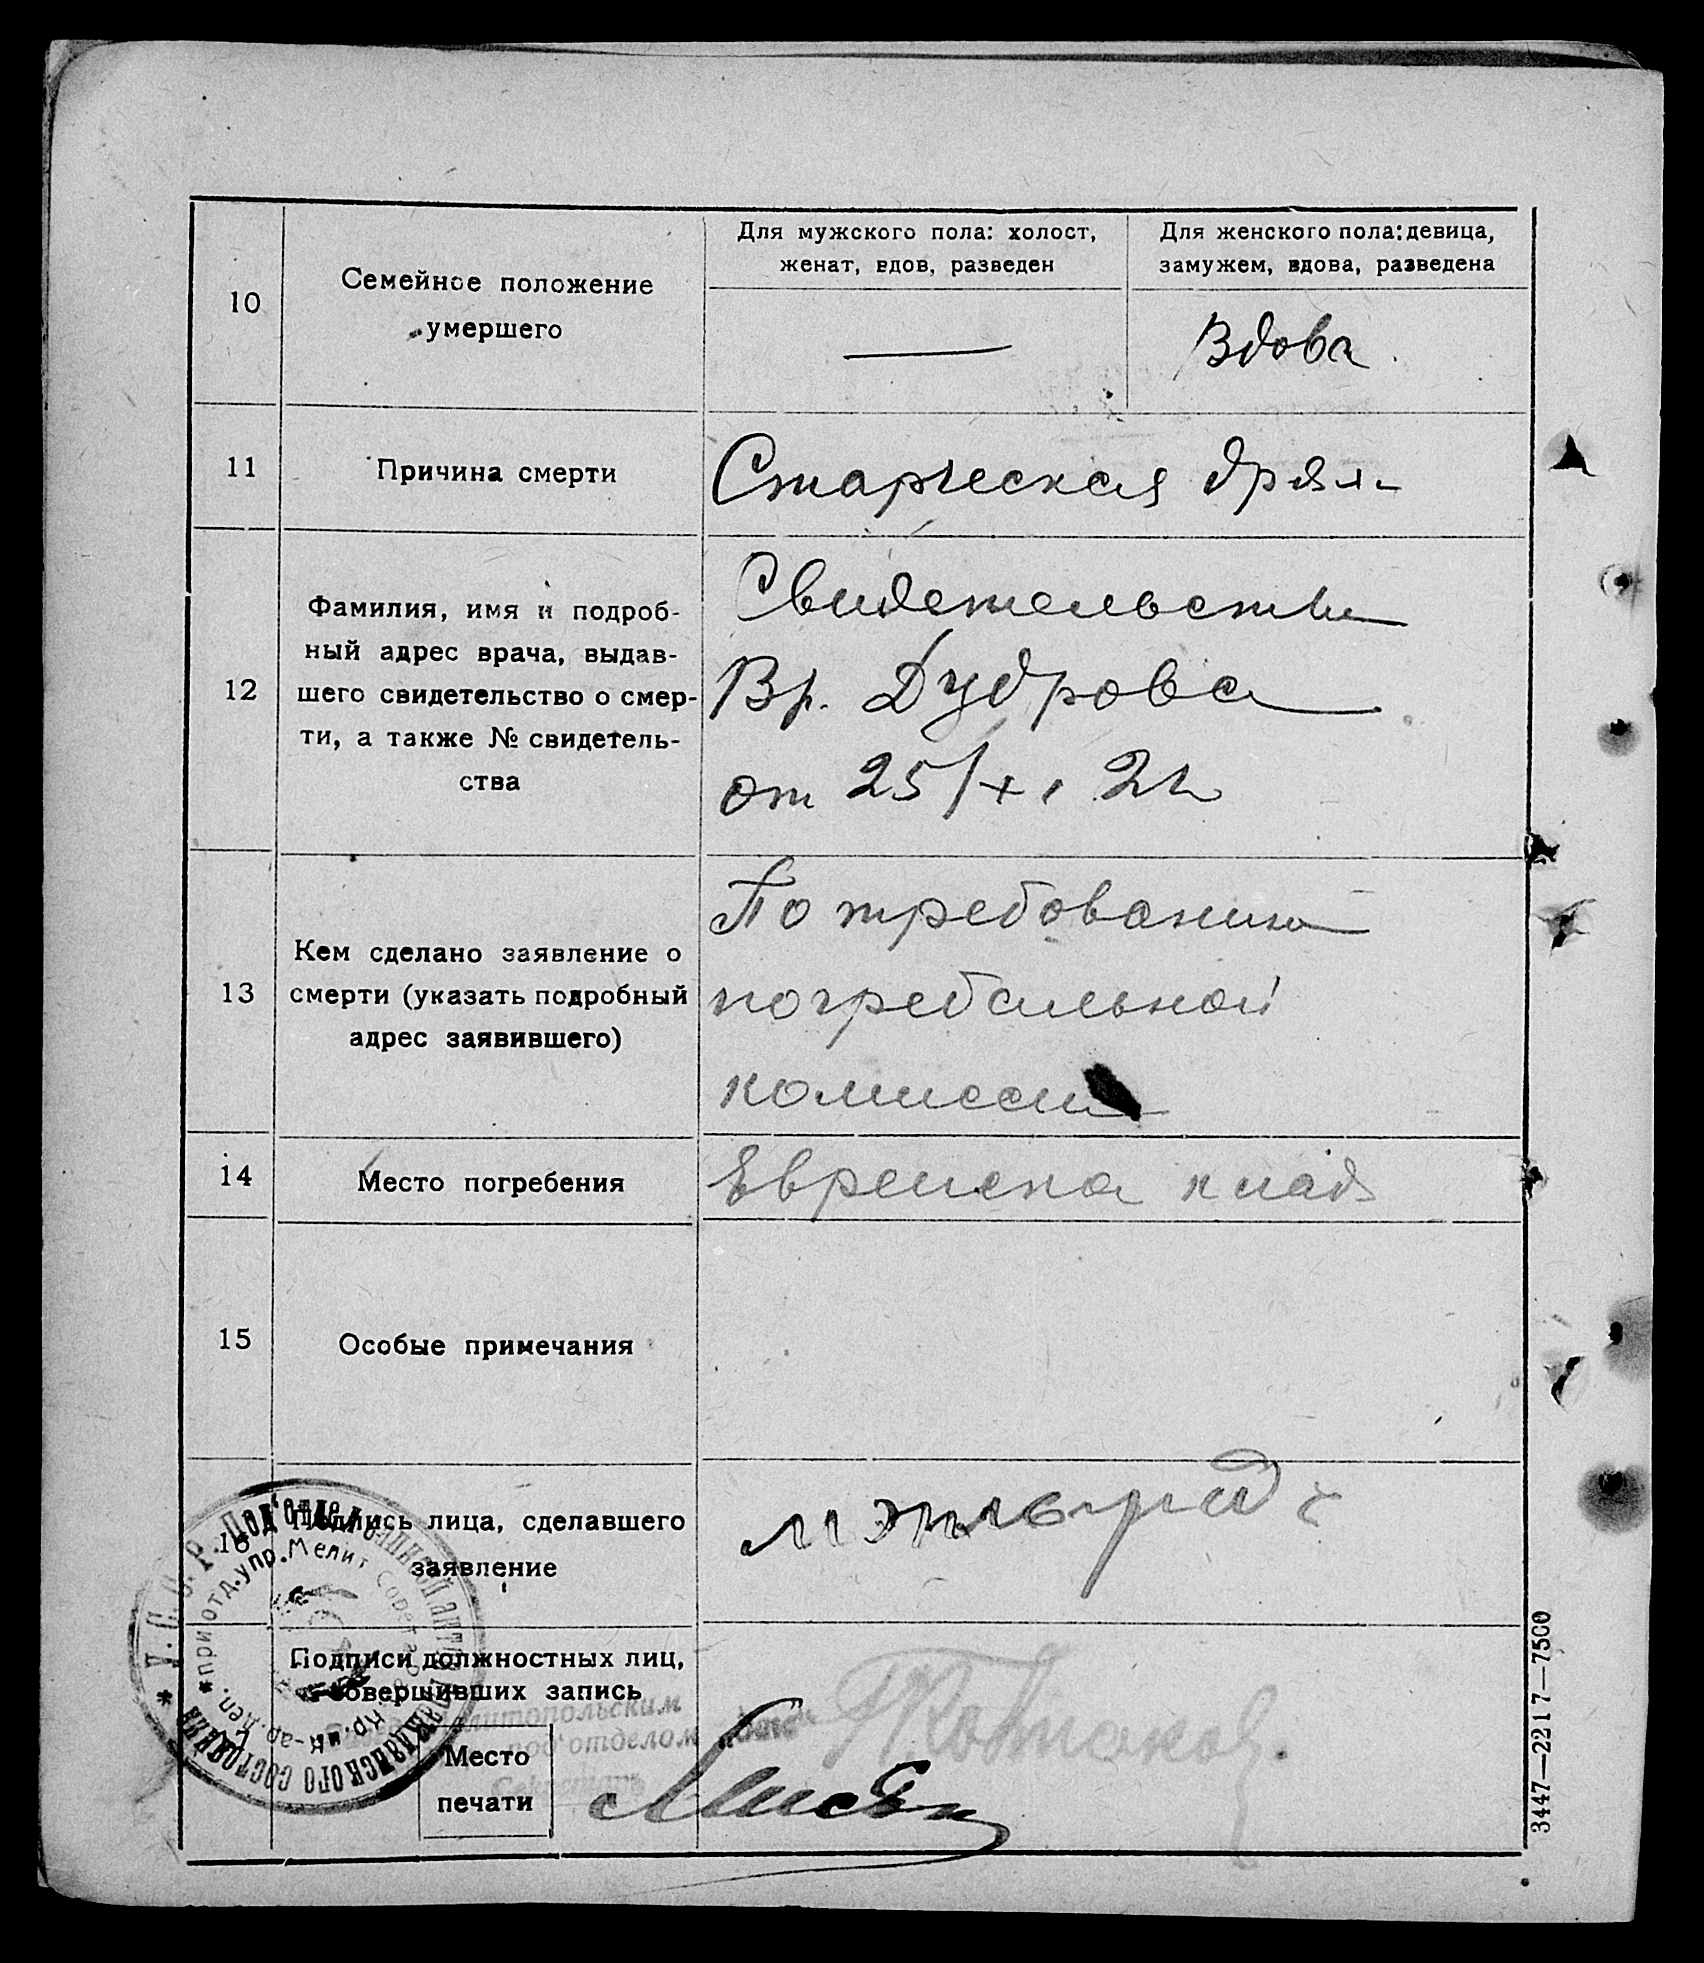 10
Семейное положение
умершего
Для мужского пола: холост,
женат, вдов, разведен
Для женского пола: девица,
замужем, вдова, разведена
Вдова
11
Причина смерти
Старческая дрях.
12
Фамилия, имя и подроб-
ный адрес врача, выдав-
шего свидетельство о смер-
ти, а также № свидетель-
ства
Свидетельство
Вр. Дудрова
от 25/XI 21
13
Кем сделано заявление о
смерти (указать подробный
адрес заявившего)
По требованию
погребальной
комиссии
14
Место погребения
Еврейска клад
15
Особые примечания
16
Подпись лица, сделавшего
заявление
Подписи должностных лиц,
совершивших запись
Место
печати
У.С.С.Р. Под'отдел записей актов гражданского состояния
при отд. упр. Мелит Совета Раб. Кр. и К-ар. деп.
литопольским
под'отделом
Секретарь
3447—2217—7500